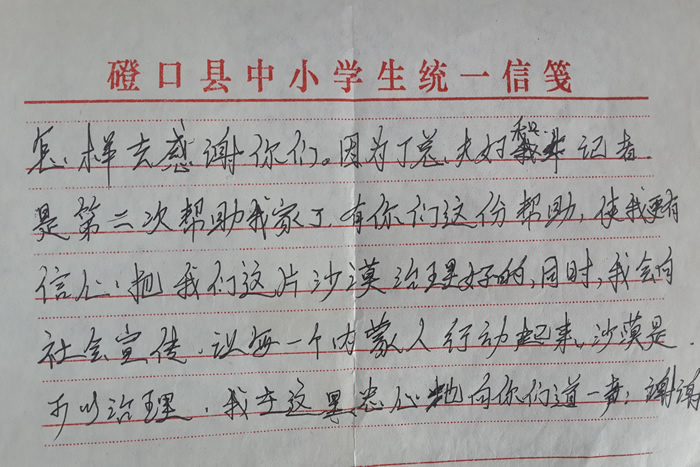 磴口县中小学生统一信笺
怎样去感谢你们。因为丁总夫妇和 记者
是第二次帮助我家了,有你们这份帮助,使我更有
信心,把我们这片沙漠治理好的,同时,我会向
社会宣传,让每一个内蒙人行动起来,沙漠是
可以治理,我在这里忠心地向你们道一声:谢谢